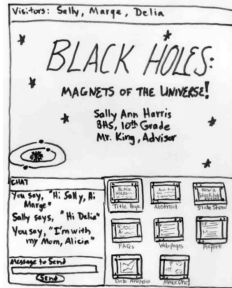 Visitors: Sally, Marge, Delia
BLACK HOLES:
MAGNETS OF THE UNIVERSE!
Sally Ann Harris
BHS, 10th Grade
Mr. King, Advisor
CHAT
You say, "Hi Sally, Hi
Marge"
Sally says, "Hi Delia"
You say, "I'm with
my Mum, Alicia"
Message to Send
Send
Title Page
Abstract
Slide Show
FAQs
Web pages
Report